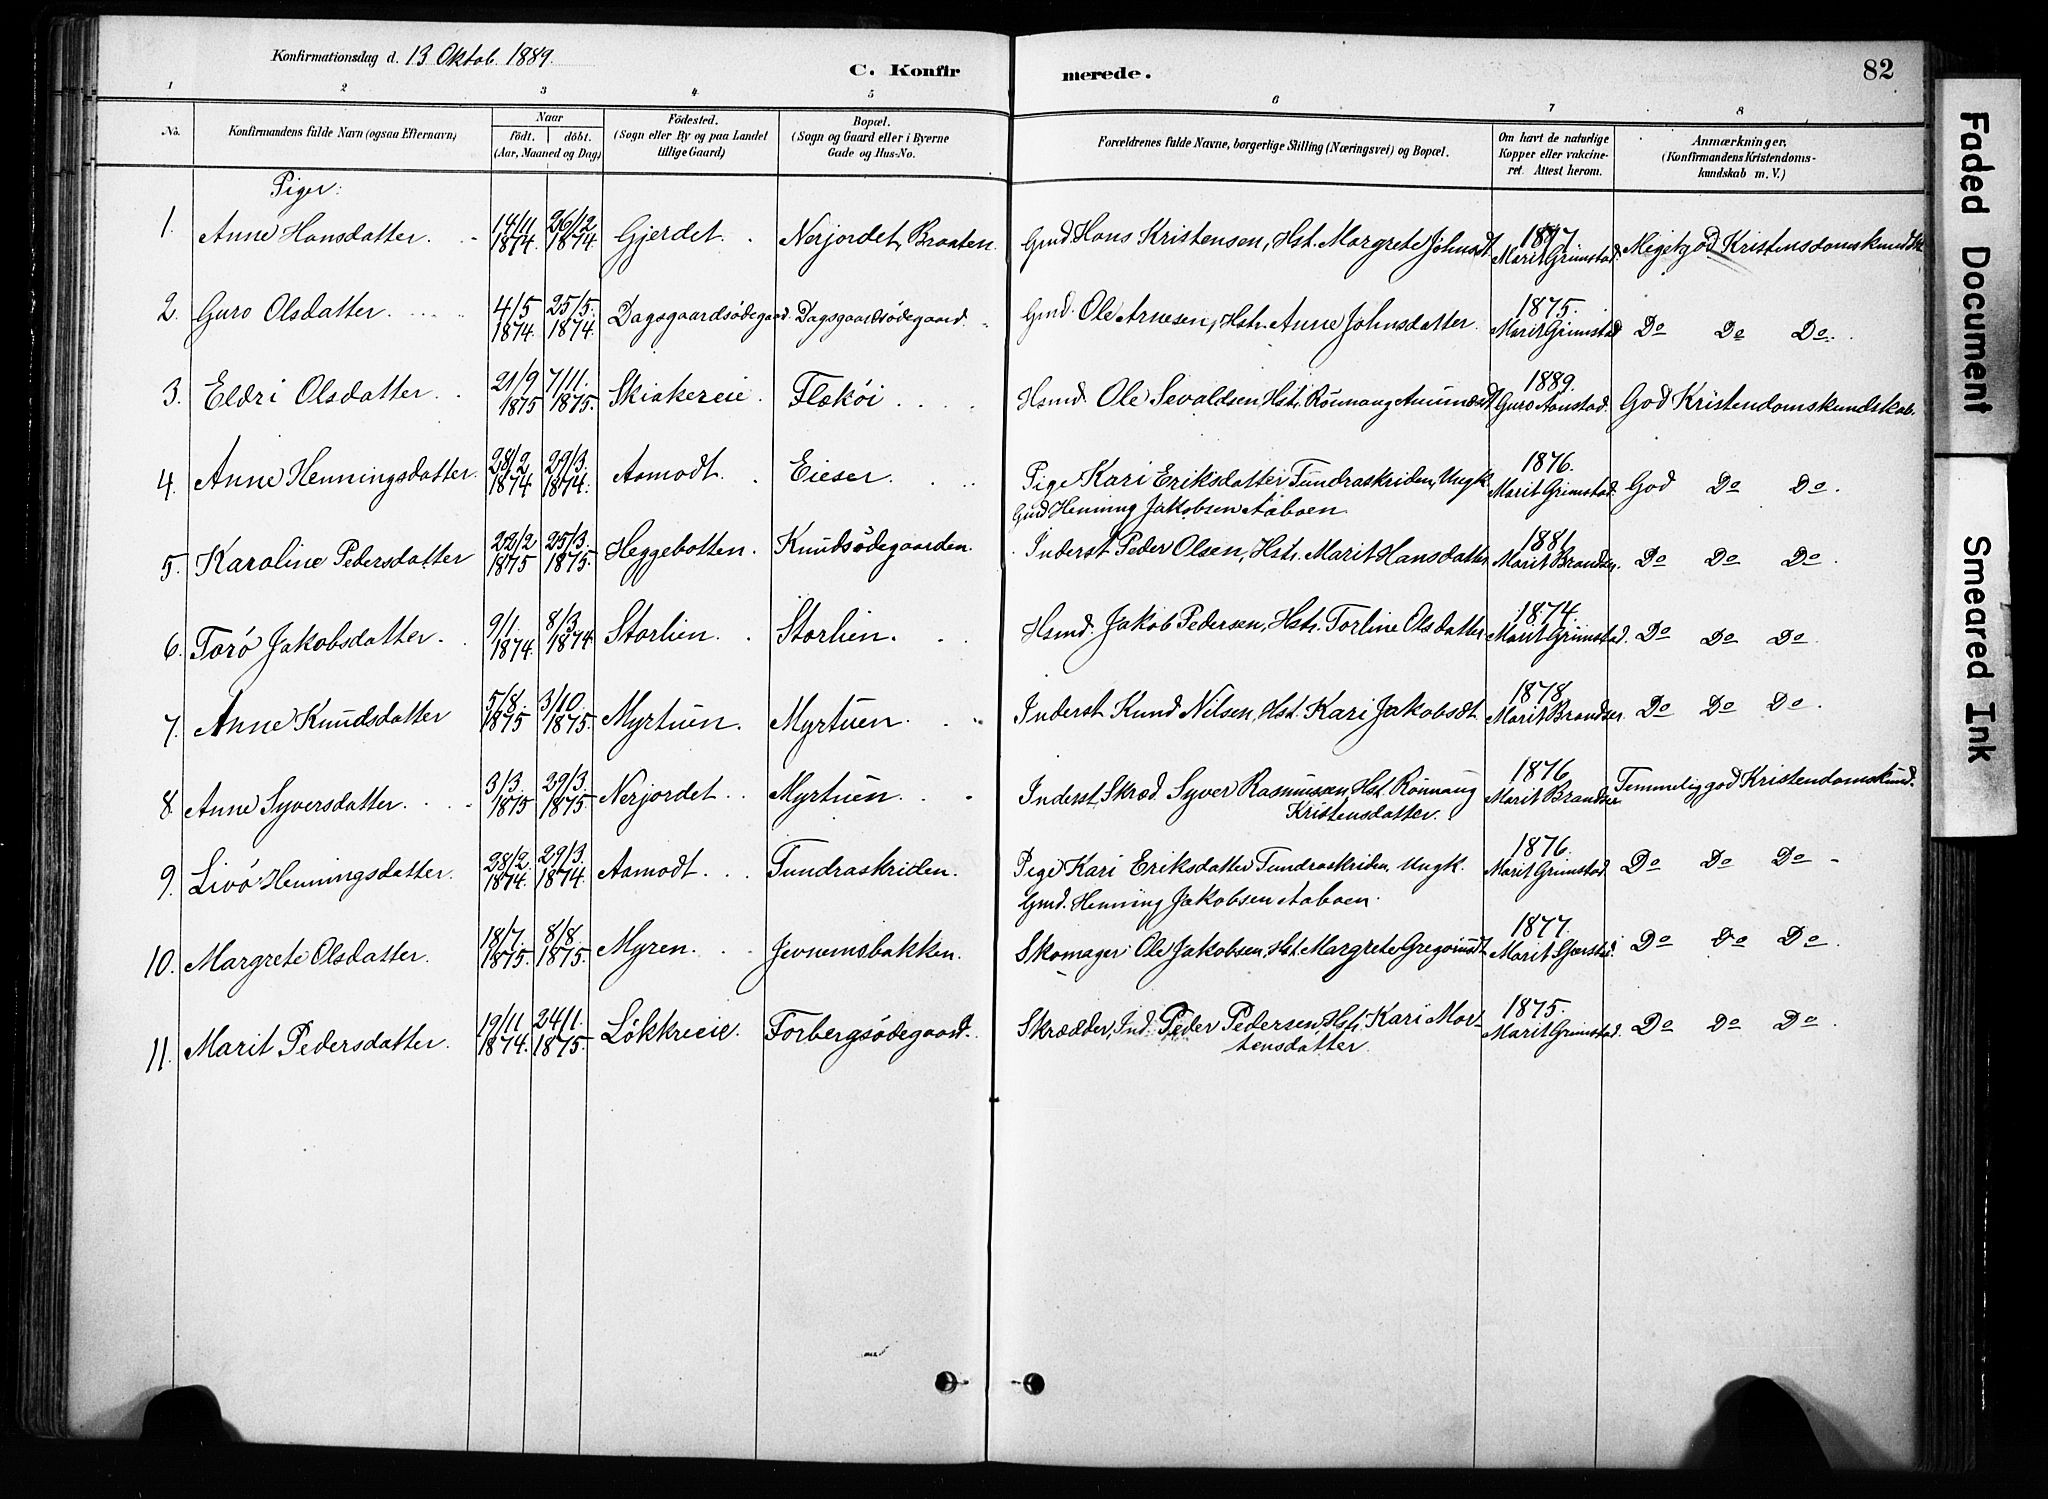 Konfirmationsdag d. 13 Oktob. 1889.
C. Konfirmerede.
82
1 2 3 4 5 6 7 8
No.
Konfirmandens fulde Navn (ogsaa Efternavn)
Naar
født. døbt.
(Aar, Maaned og Dag)
Fødested.
(Sogn eller By og paa Landet
tillige Gaard)
Bopæl.
(Sogn og Gaard eller i Byerne
Gade og Hus-No.
Forældrenes fulde Navne, borgerlige Stilling (Næringsvei) og Bopæl.
Om havt de naturlige
Kopper eller vakcine-
ret. Attest herom.
Anmærkninger.
(Konfirmandens Kristendoms-
kundskab m. V.)
Piger:
1. Anne Hansdatter. 14/11 1874. 26/12 1874. Gjerdet. Nerjordet, Braaten. Gmd. Hans Kristensen, Hst. Margrete Johnsdt. Marit Grimstad. Meget god Kristendomskundsk.
2. Guro Olsdatter. 4/5 1874. 25/5. 1874. Dagsgaardsødegaard. Dagsgaardsødegaard. Gmd. Ole Arnesen, Hstr. Anne Johnsdatter. 1875. Marit Grimstad Do Do Do.
3. Eldri Olsdatter. 21/9 1875 7/11. 1875. Skiakereie. Flækøi. Hsmd. Ole Sevaldsen, Hst. Rønnaug 1889. Guro Aanstad. God Kristendomskundskab.
4. Anne Henningsdatter. 28/2 1874 29/3. 1874. Aamodt. Eieser. Pige Kari Eriksdatter Tundraskriden, Ungk.
Gmd Henning Jakobsen Aaboen 1876. Marit Grimstad. God Do Do.
5. Karoline Pedersdatter 22/2 1875 25/3. 1875. Heggebotten. Knudsødegaarden. Inderst Peder Olsen, Hstr. Marit Hansdatter 1881. Marit Brandser. Do Do Do.
6. Torø Jakobsdatter. 9/1. 1874. 8/3 1874. Storlien. Storlien. Hsmd. Jakob Pedersen, Hstr. Torline Olsdatter 1874. Marit Grimstad. Do Do Do.
7. Anne Knudsdatter 5/8. 1875 3/10. 1875. Myrtuen. Myrtuen. Inderst Knud Nilsen, Hst. Kari Jakobsdt. 1878. Marit Brandser. Do Do Do.
8. Anne Syversdatter. 3/3. 1875 29/3. 1875 Nerjordet. Myrtuen. Inderst, Skræd. Syver Rasmusen, Hst. Rønnaug
Kristensdatter. 1876. Marit Brandser Temmelig god Kristendomskund.
9. Livø Henningsdatter. 28/2. 1874. 29/3. 1874. Aamodt. Tundraskriden. Pige Kari Eriksdatter Tundraskriden, Ungk.
Gmd. Henning Jakobsen Aaboen. 1876. Marit Grimstad Do Do Do
10. Margrete Olsdatter. 18/7. 1875. 8/8. 1875. Myren. Jevnemsbakken. Skomager Ole Jakobsen, Hst. Margrete Gregoriusdt. 1877. Marit Do Do Do.
11. Marit Pedersdatter. 19/11 1874. 24/1. 1875. Løkkreie. Forbergsødegaard. Skrædder, Ind. Peder Pedersen, Hstr. Kari Mor-
tensdatter. 1875. Marit Grimstad. Do Do Do.
Faded Document
Smeared Ink